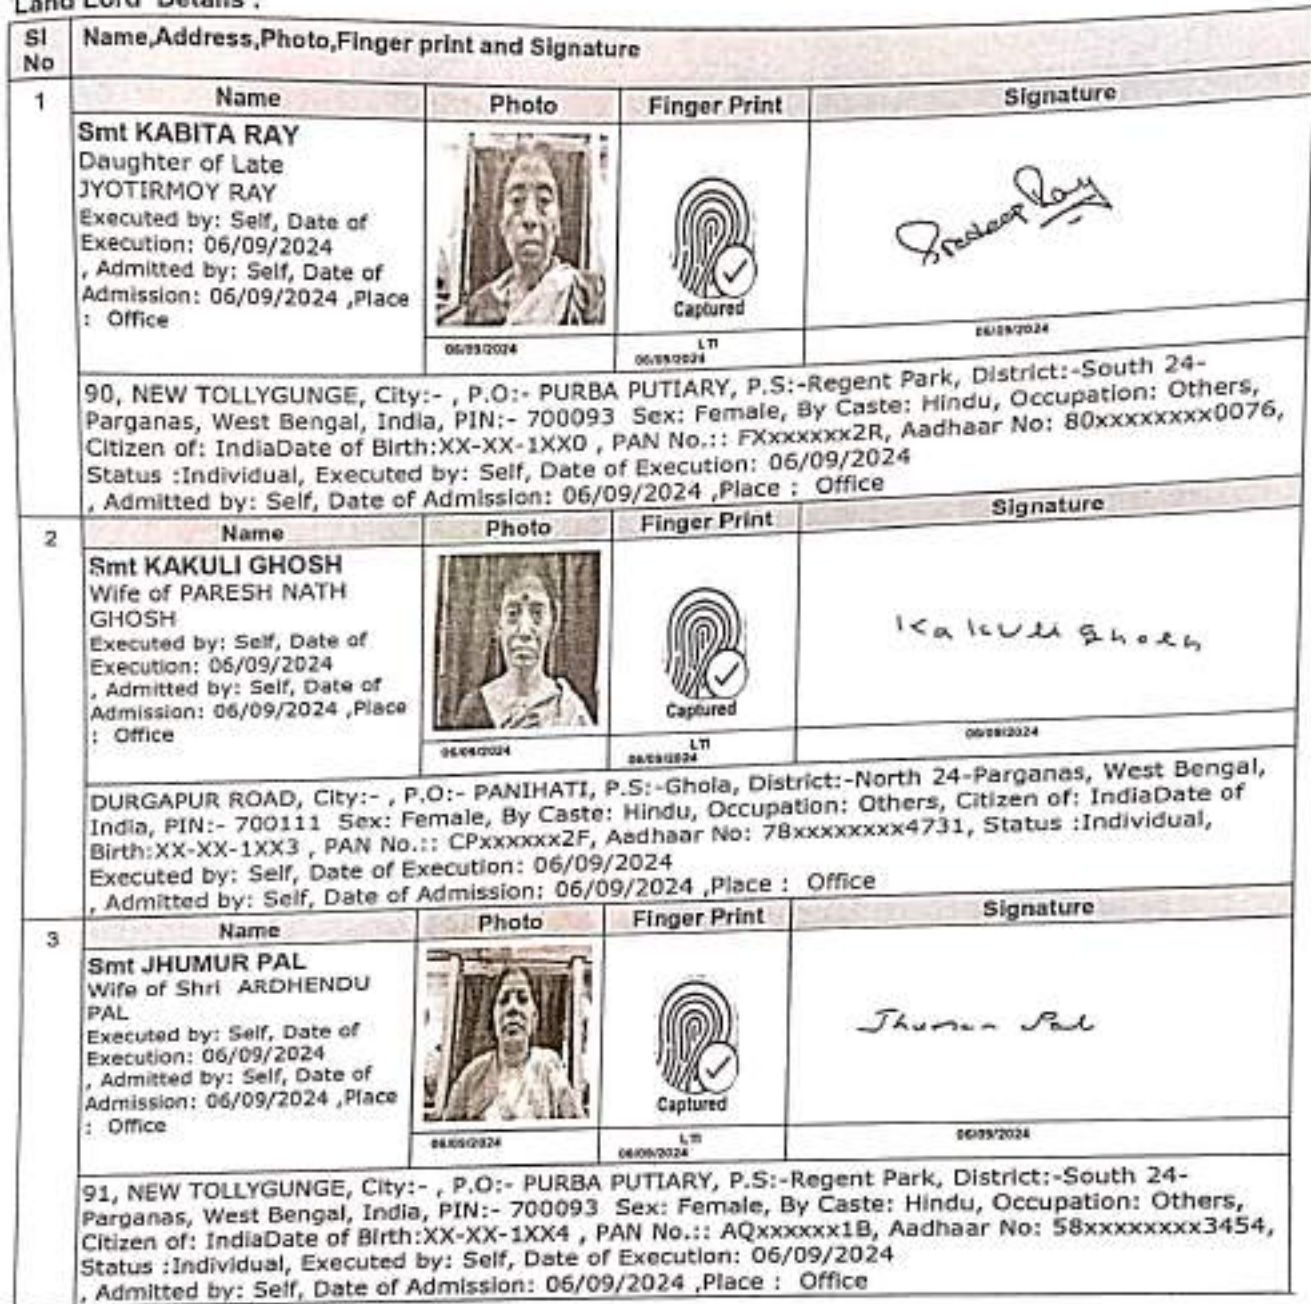 Land Lord Details :
Sl No Name,Address,Photo,Finger print and Signature
1 Name Photo Finger Print Signature
Smt KABITA RAY
Daughter of Late
JYOTIRMOY RAY
Executed by: Self, Date of
Execution: 06/09/2024
, Admitted by: Self, Date of
Admission: 06/09/2024 ,Place
: Office
Captured
Ray
06/09/2024 LTI 06/09/2024 06/09/2024
90, NEW TOLLYGUNGE, City:- , P.O:- PURBA PUTIARY, P.S:-Regent Park, District:-South 24-
Parganas, West Bengal, India, PIN:- 700093 Sex: Female, By Caste: Hindu, Occupation: Others,
Citizen of: IndiaDate of Birth:XX-XX-1XX0 , PAN No.:: FXxxxxxx2R, Aadhaar No: 80xxxxxxxx0076,
Status :Individual, Executed by: Self, Date of Execution: 06/09/2024
, Admitted by: Self, Date of Admission: 06/09/2024 ,Place : Office
2 Name Photo Finger Print Signature
Smt KAKULI GHOSH
Wife of PARESH NATH
GHOSH
Executed by: Self, Date of
Execution: 06/09/2024
, Admitted by: Self, Date of
Admission: 06/09/2024 ,Place
: Office
Captured
Kakuli Ghosh
06/09/2024 LTI 06/09/2024 06/09/2024
DURGAPUR ROAD, City:- , P.O:- PANIHATI, P.S:-Ghola, District:-North 24-Parganas, West Bengal,
India, PIN:- 700111 Sex: Female, By Caste: Hindu, Occupation: Others, Citizen of: IndiaDate of
Birth:XX-XX-1XX3 , PAN No.:: CPxxxxxx2F, Aadhaar No: 78xxxxxxxx4731, Status :Individual,
Executed by: Self, Date of Execution: 06/09/2024
, Admitted by: Self, Date of Admission: 06/09/2024 ,Place : Office
3 Name Photo Finger Print Signature
Smt JHUMUR PAL
Wife of Shri ARDHENDU
PAL
Executed by: Self, Date of
Execution: 06/09/2024
, Admitted by: Self, Date of
Admission: 06/09/2024 ,Place
: Office
Captured
Jhumur Pal
06/09/2024 LTI 06/09/2024 06/09/2024
91, NEW TOLLYGUNGE, City:- , P.O:- PURBA PUTIARY, P.S:-Regent Park, District:-South 24-
Parganas, West Bengal, India, PIN:- 700093 Sex: Female, By Caste: Hindu, Occupation: Others,
Citizen of: IndiaDate of Birth:XX-XX-1XX4 , PAN No.:: AQxxxxxx1B, Aadhaar No: 58xxxxxxxx3454,
Status :Individual, Executed by: Self, Date of Execution: 06/09/2024
, Admitted by: Self, Date of Admission: 06/09/2024 ,Place : Office